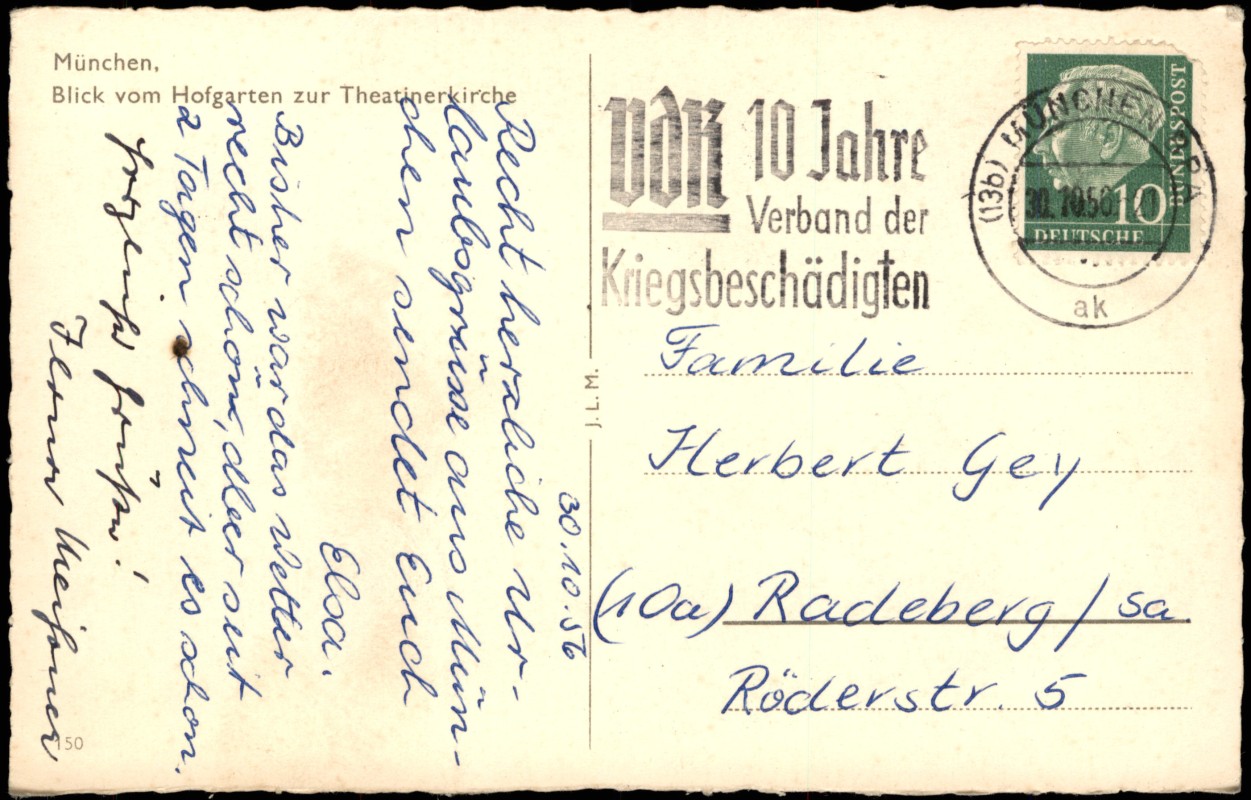 München,
Blick vom Hofgarten zur Theatinerkirche
30.10.56
Recht herzliche Ur-
laubsgrüsse aus Mün-
chen sendet Euch
Elsa.
Bisher war das Wetter
recht schön, aber seit
2 Tagen schneit es schon.
Grüße!
150
J.L.M.
VdK 10 Jahre
Verband der
Kriegsbeschädigten
(13b) MÜNCHEN
30.10.56
ak
BUNDESPOST
10
DEUTSCHE
Familie
Herbert Gey
(10a) Radeberg/Sa.
Röderstr. 5